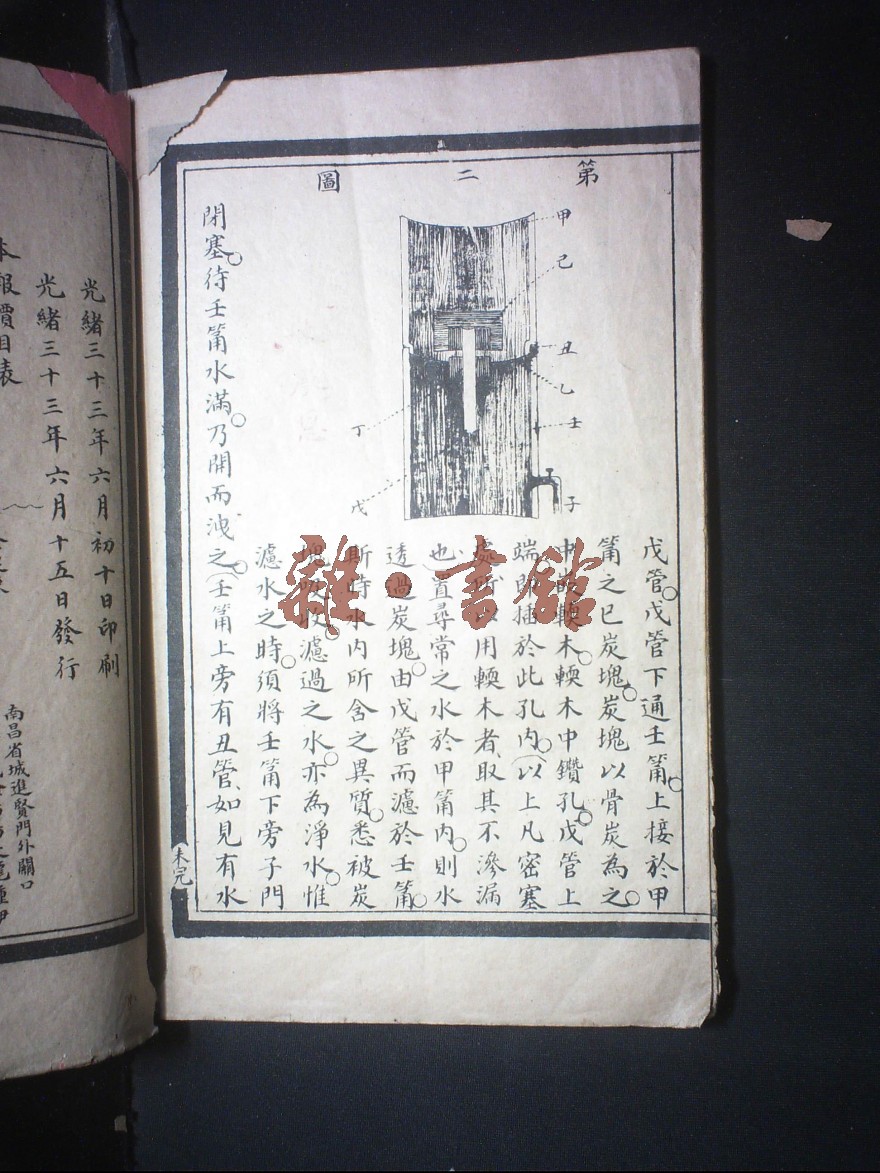 第二圖
甲
己
丑
乙
壬
子
丁
戊
戊管。戊管下通壬筩。上接於甲
筩之巳炭塊。炭塊以骨炭為之。
輭木。輭木中鑽孔。戊管上
端即插於此孔內。(以上凡密塞
處所以用輭木者取其不滲漏
也)置尋常之水於甲筩內。則水
透過炭塊。由戊管而濾於壬筩。
斯時水內所含之異質。悉被炭
塊吸收。濾過之水。亦為淨水。惟
濾水之時。須將壬筩下旁子門
閉塞。待壬筩水滿。乃開而洩之。(壬筩上旁有丑管、如見有水
未完
雜·書館
本報價目表
光緒三十三年六月初十日印刷
光緒三十三年六月十五日發行
南昌省城進賢門外關口